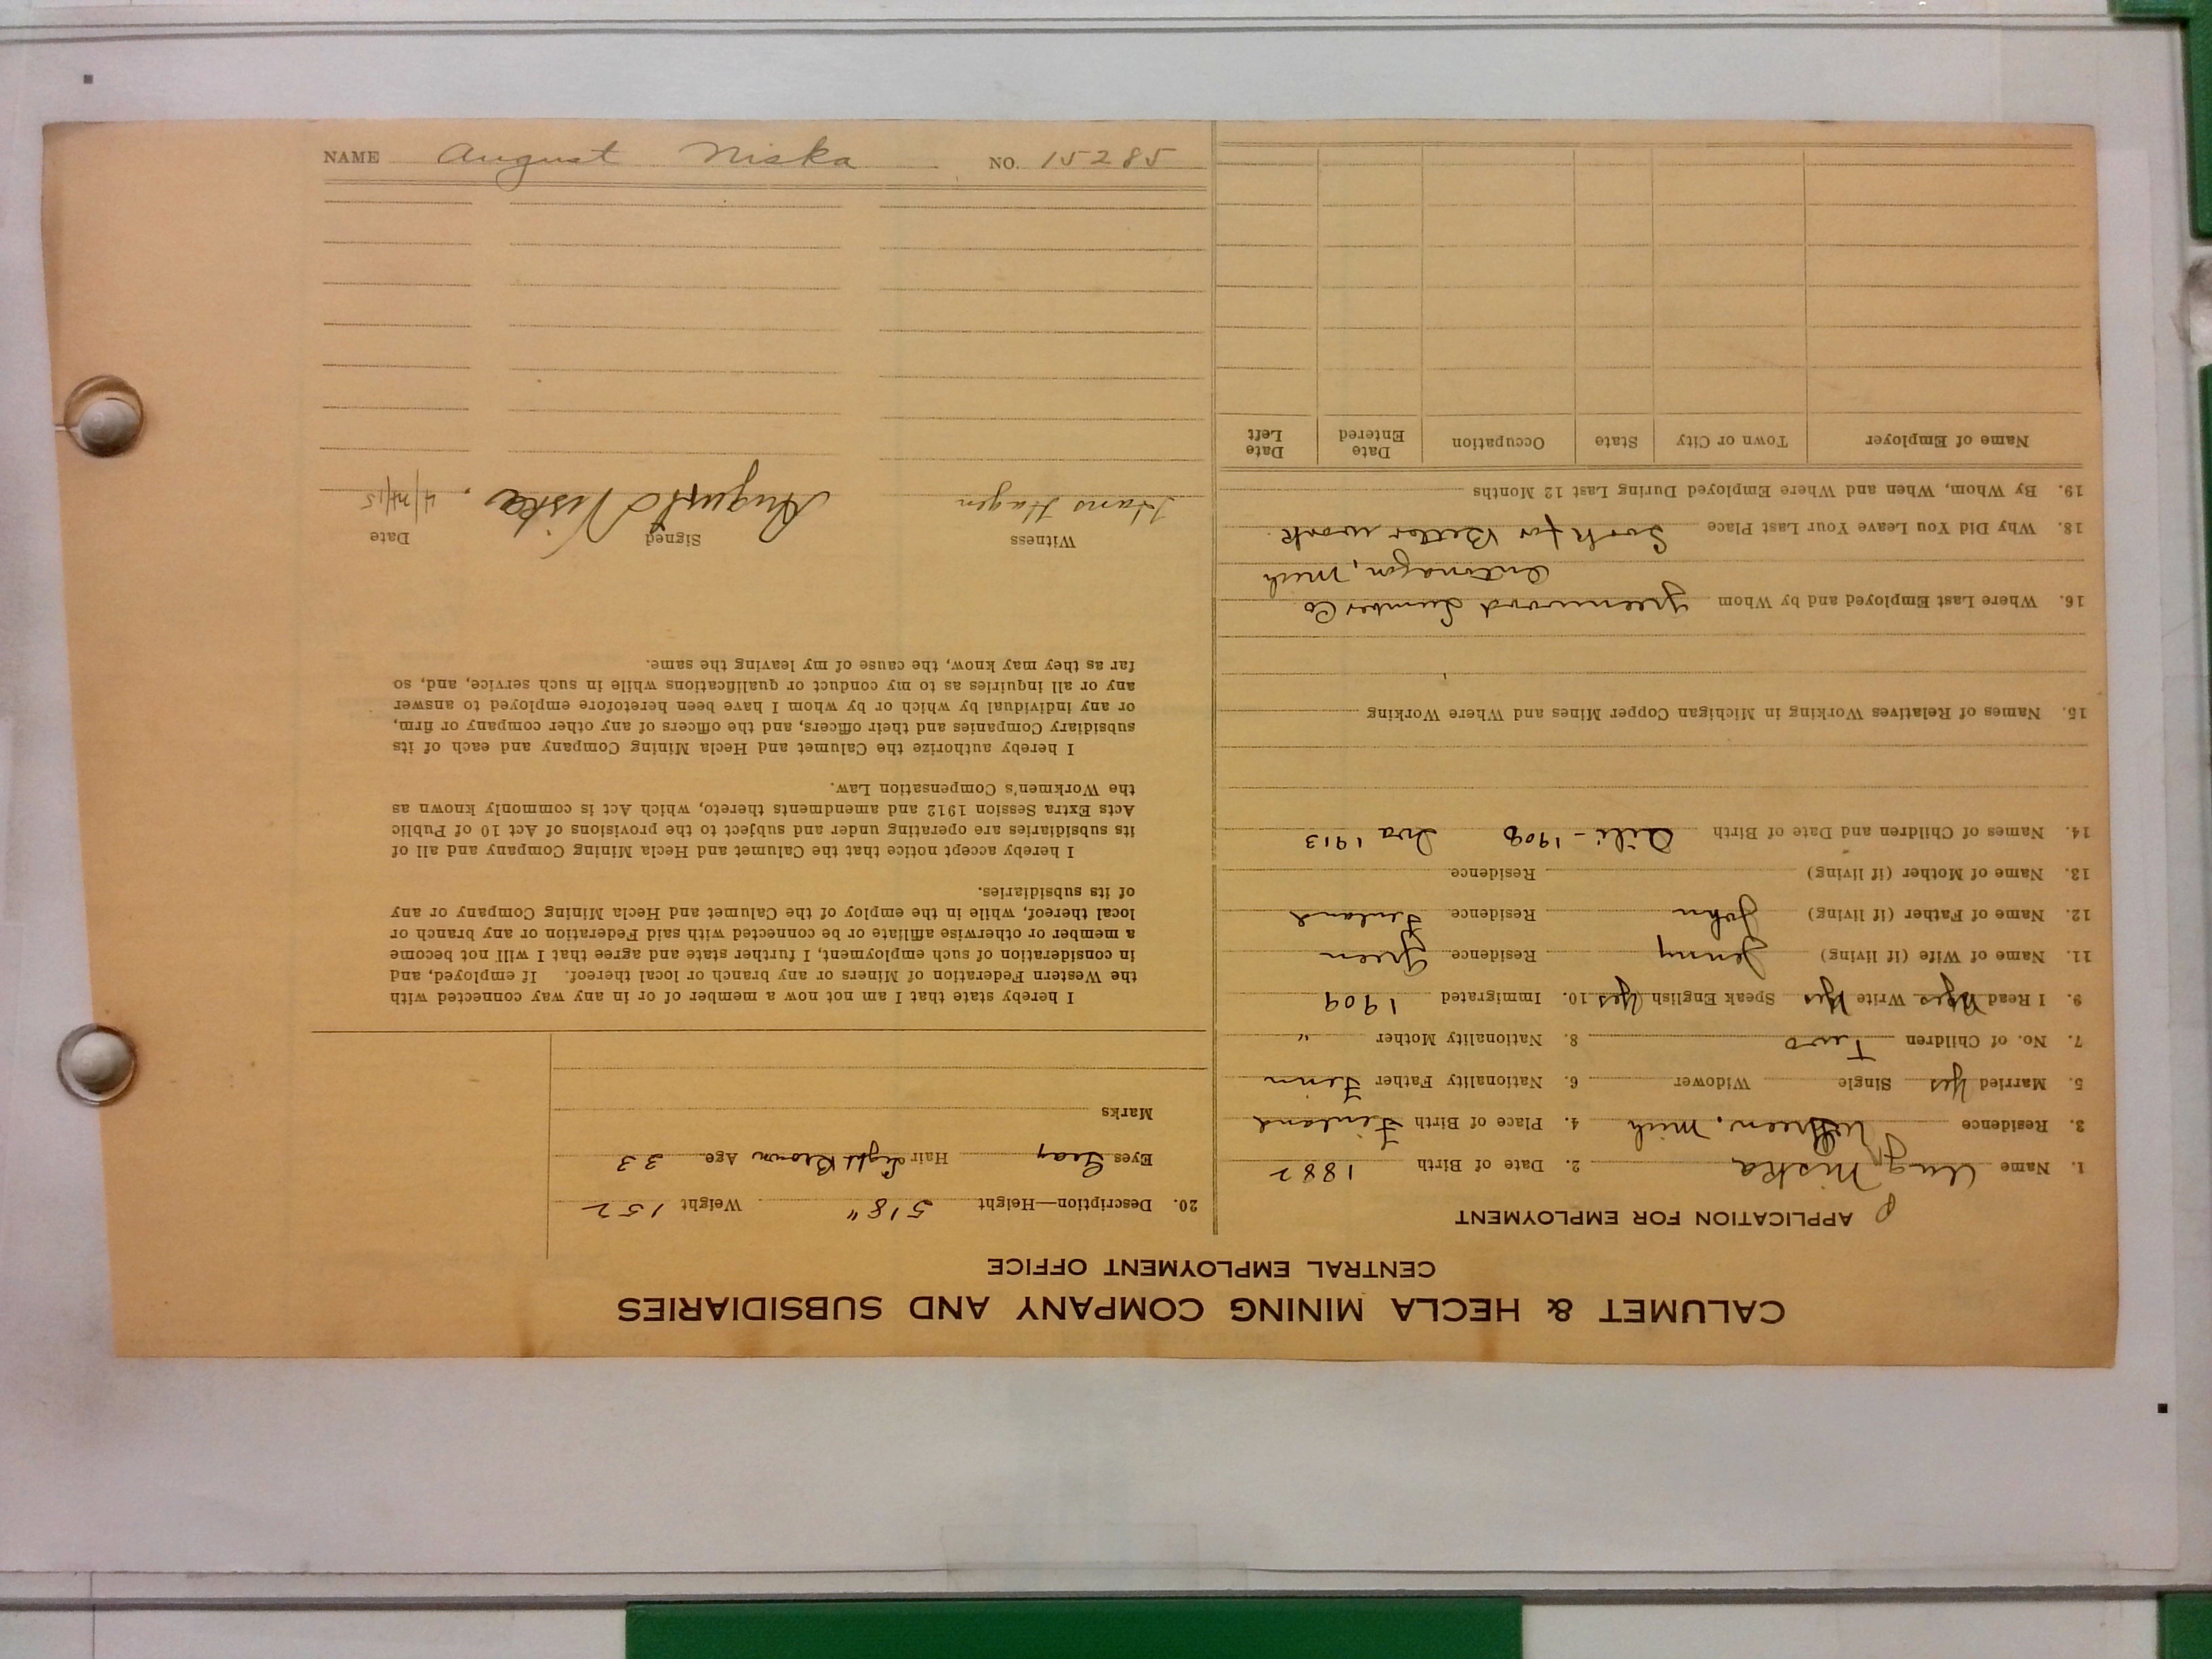 CALUMET & HECLA MINING COMPANY AND SUBSIDIARIES
CENTRAL EMPLOYMENT OFFICE
APPLICATION FOR EMPLOYMENT
1. Name Aug Niska 2. Date of Birth 1882
3. Residence Green, Mich 4. Place of Birth Finland
5. Married Yes Single Widower 6. Nationality Father Finn
7. No. of Children Two 8. Nationality Mother "
9. I Read Yes Write Yes Speak English Yes 10. Immigrated 1909
11. Name of Wife (if living) Jenny Residence Green
12. Name of Father (if living) John Residence Finland
13. Name of Mother (if living) Residence
14. Names of Children and Date of Birth Aili - 1908 Iva 1913
15. Names of Relatives Working in Michigan Copper Mines and Where Working
16. Where Last Employed and by Whom Greenwood Lumber Co
Ontonagon, Mich
18. Why Did You Leave Your Last Place for Better work.
19. By Whom, When and Where Employed During Last 12 Months
Name of Employer Town or City State Occupation Date Entered Date Left
20. Description—Height 5' 8" Weight 152
Eyes Gray Hair Light Brown Age 33
Marks
I hereby state that I am not now a member of or in any way connected with
the Western Federation of Miners or any branch or local thereof. If employed, and
in consideration of such employment, I further state and agree that I will not become
a member or otherwise affiliate or be connected with said Federation or any branch or
local thereof, while in the employ of the Calumet and Hecla Mining Company or any
of its subsidiaries.
I hereby accept notice that the Calumet and Hecla Mining Company and all of
its subsidiaries are operating under and subject to the provisions of Act 10 of Public
Acts Extra Session 1912 and amendments thereto, which Act is commonly known as
the Workmen's Compensation Law.
I hereby authorize the Calumet and Hecla Mining Company and each of its
subsidiary Companies and their officers, and the officers of any other company or firm,
or any individual by which or by whom I have been heretofore employed to answer
any or all inquiries as to my conduct or qualifications while in such service, and, so
far as they may know, the cause of my leaving the same.
Witness Signed Date
Hans Hagen August Niska
NAME August Niska NO. 15285